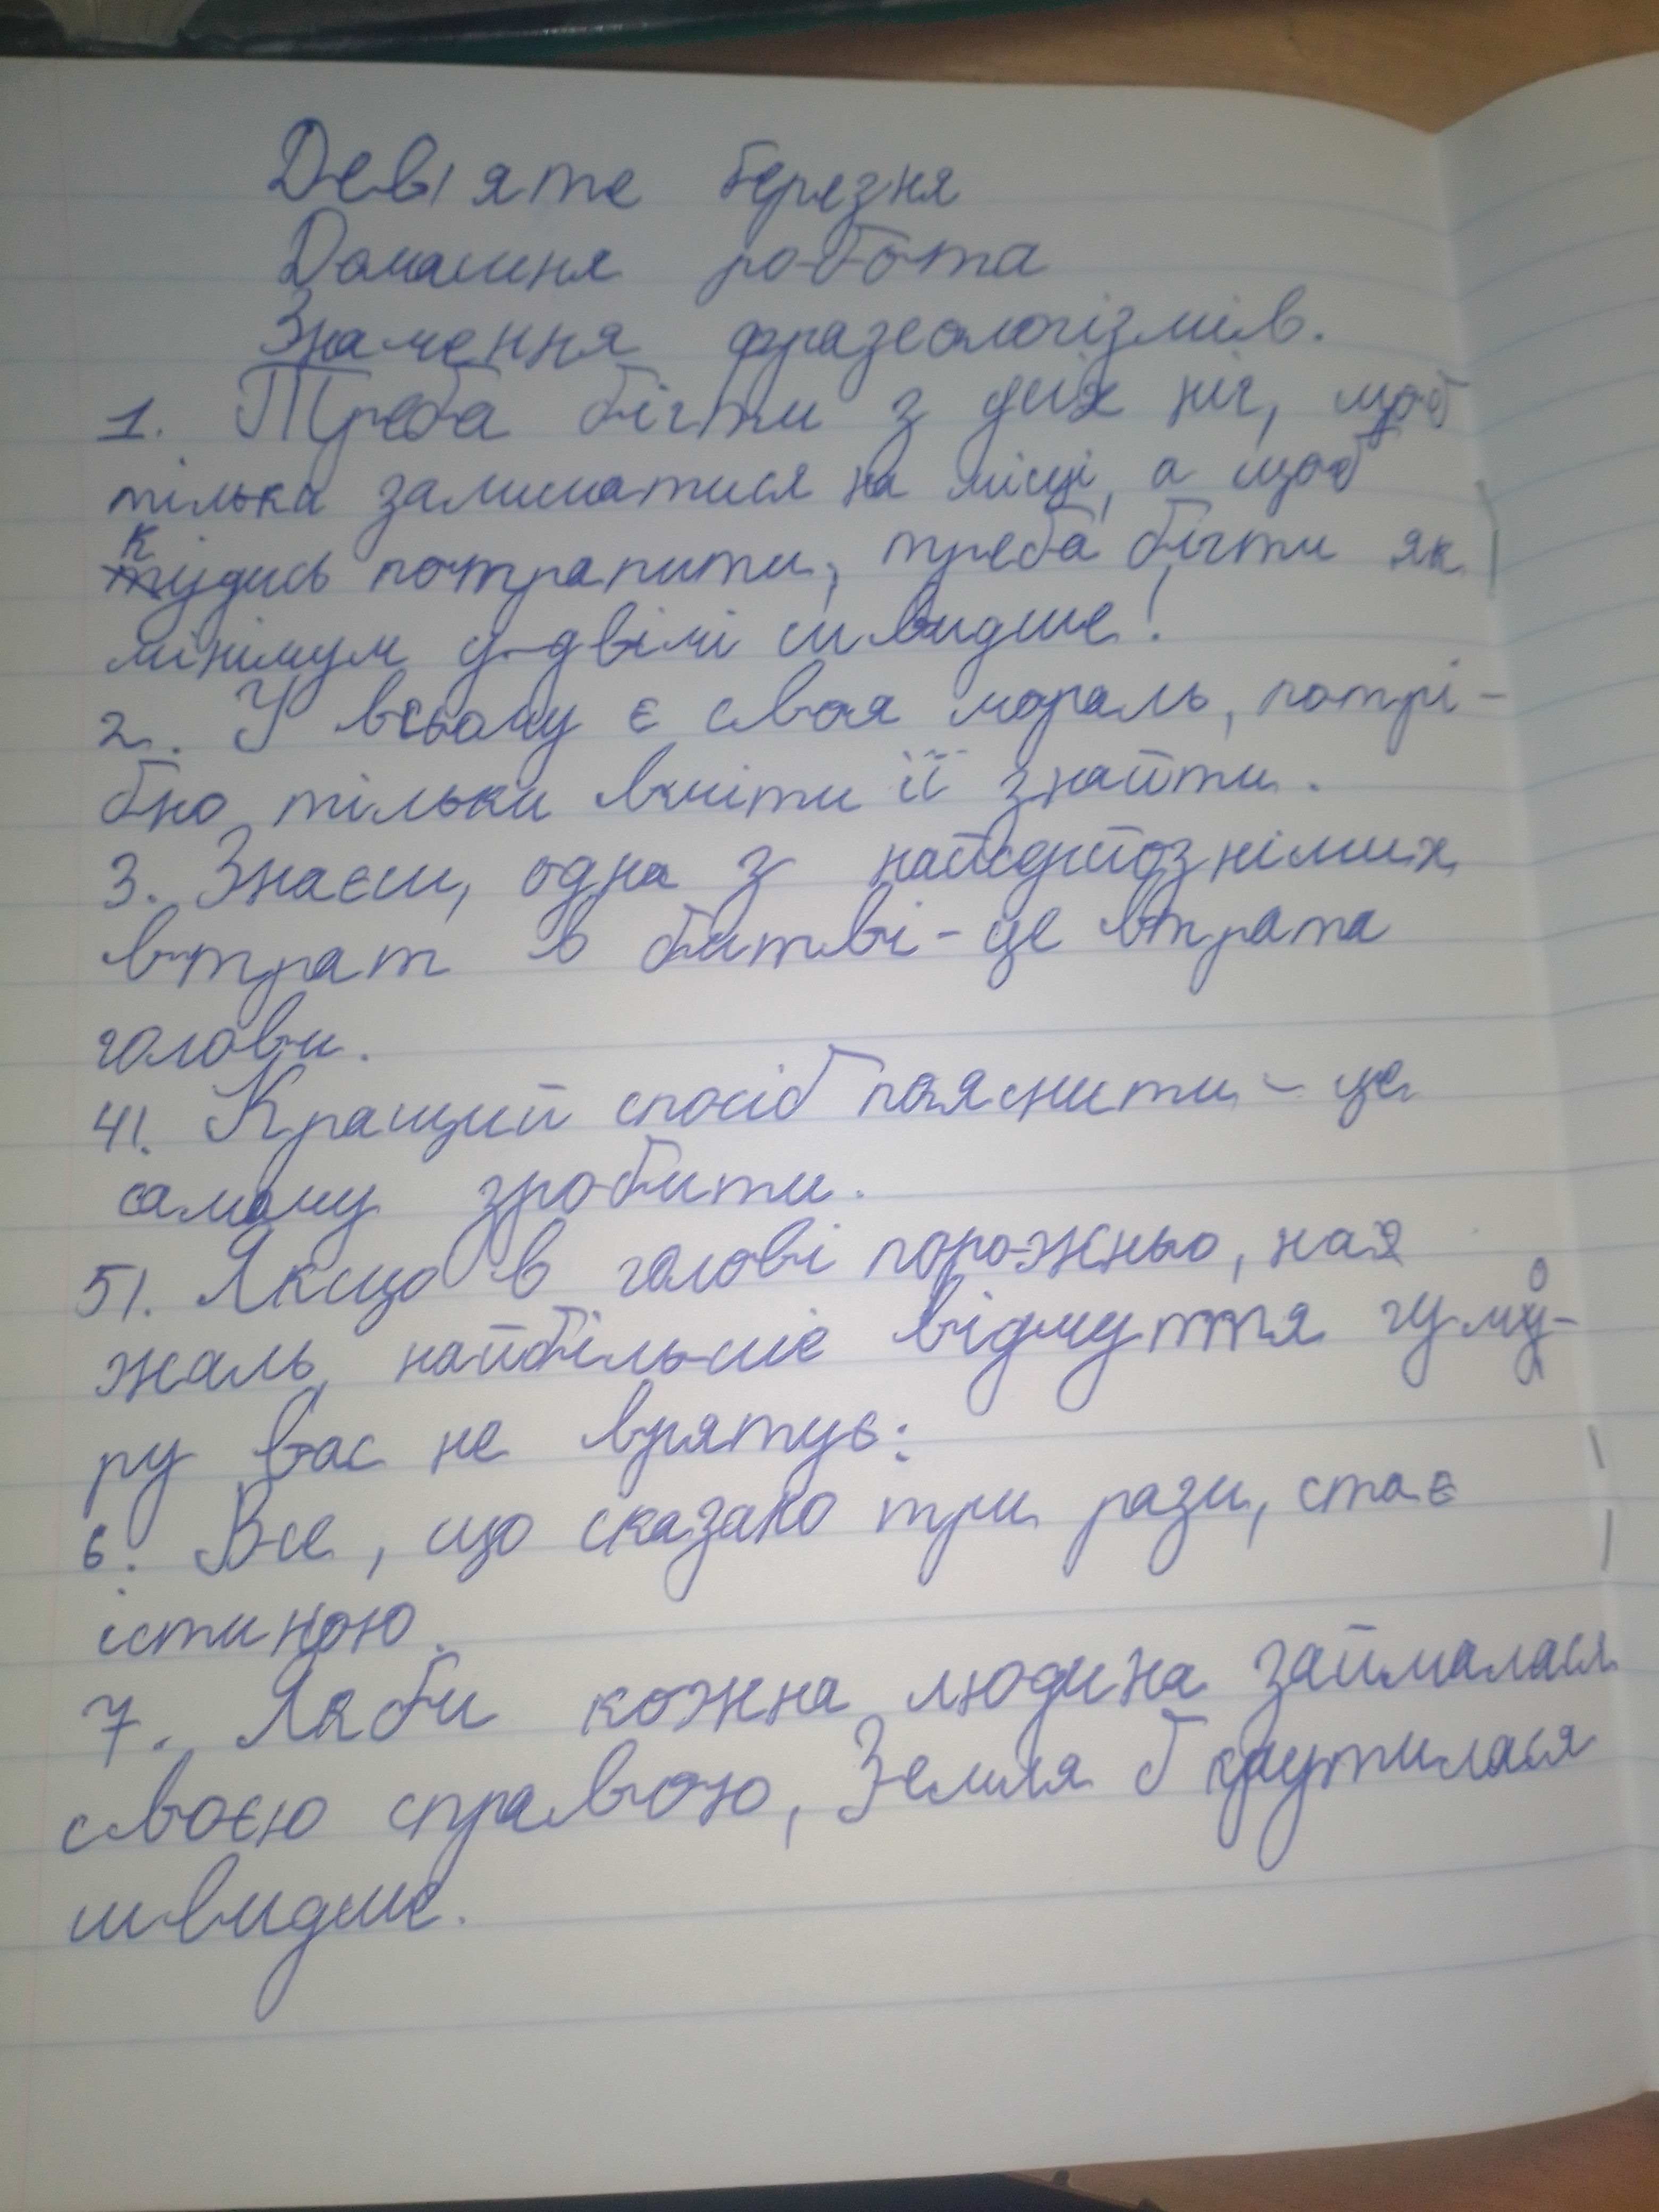 Дев'яте березня
Домашня робота
Значення фразеологізмів.
1. Треба бігти з усіх ніг, щоб
тільки залишатися на місці, а щоб
кудись потрапити, треба бігти як
мінімум у двічі швидше!
2. У всьому є своя мораль, потрі-
бно тільки вміти її знайти.
3. Знаєш, одна з найсерйозніших
втрат в битві - це втрата
голови.
4. Кращий спосіб пояснити - це
самому зробити.
5. Якщо в голові порожньо, на
жаль, найбільше відчуття гумо-
ру вас не врятує.
6. Все, що сказано три рази, стає
істиною.
7. Якби кожна людина займалася
своєю справою, Земля б крутилася
швидше.